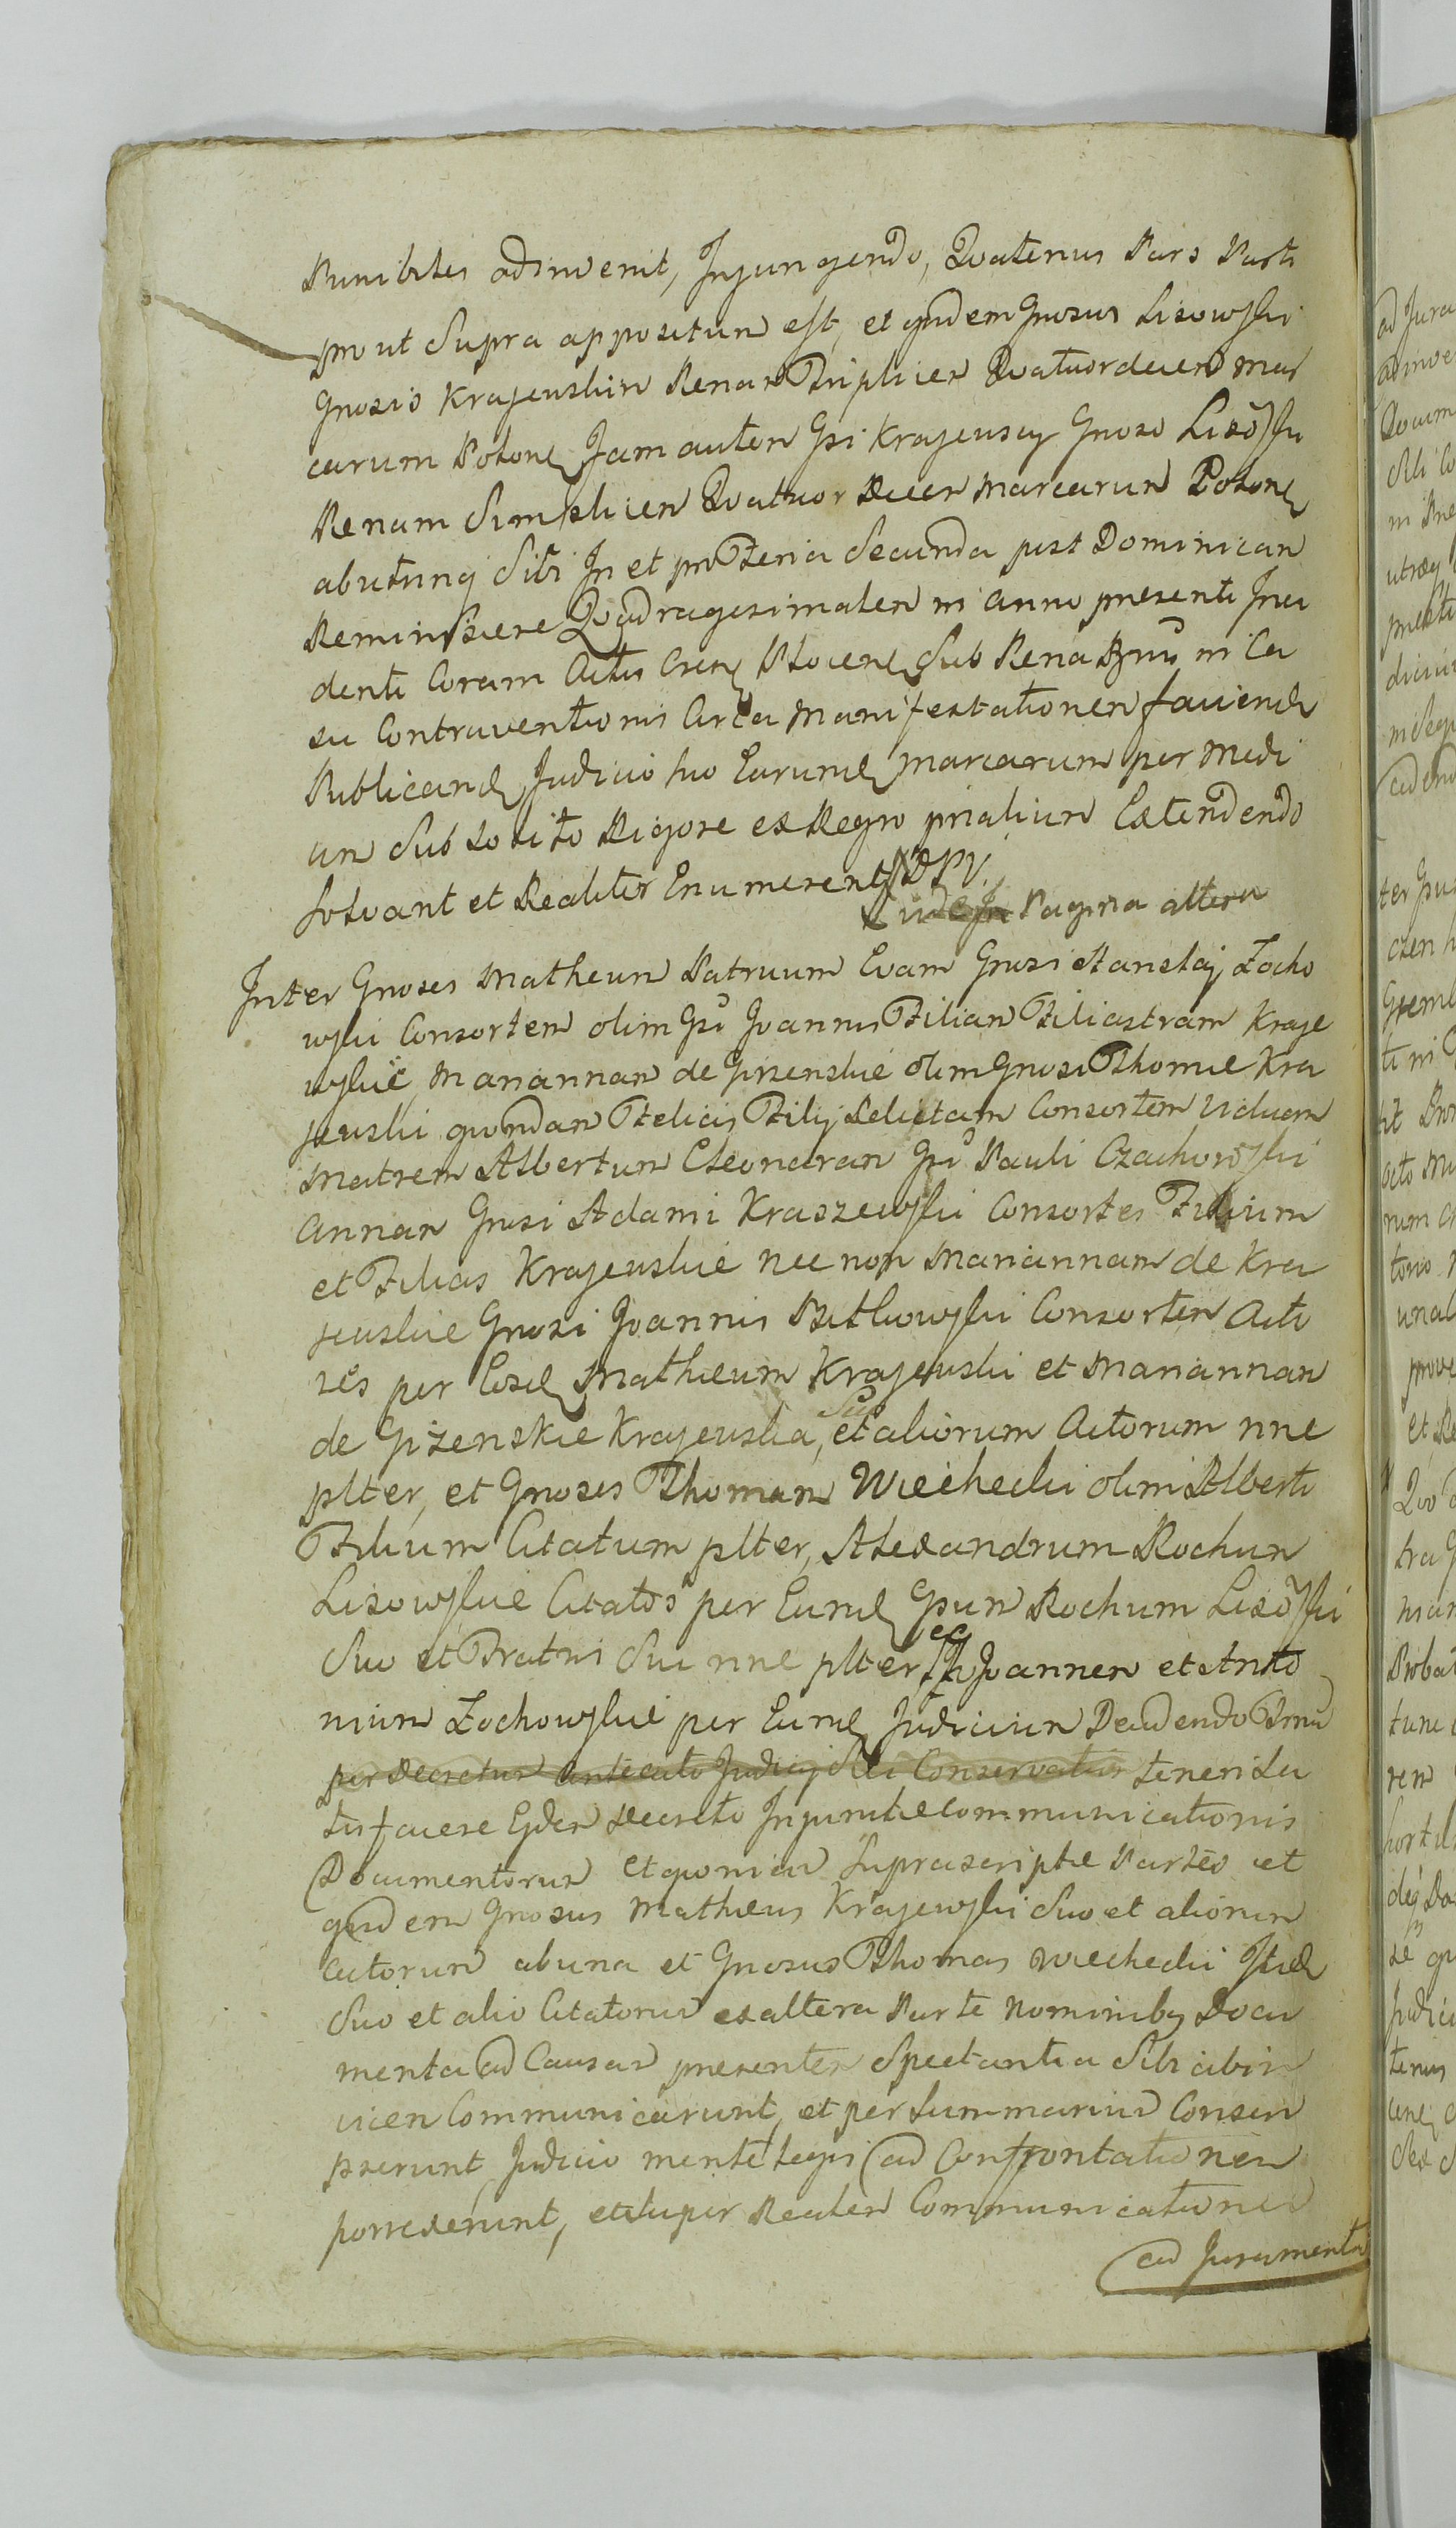 Punibiles adinvenit, Injungendo, Quatenus Pars Parti
prout Supra appositum est, et qdem Gnosus Lisowski
Gnosis Krajewskim Penam Triplicem Quatuordecem mar
carum Polonl Jam autem Gsi Krajewscy Gnoso Lisõski
Penam Simplicem Quatuor decem marcarum Polonl
abutrinq Sibi In et pro Feria Secunda post Dominicam
Reminiscere Quadragesimalem in anno presenti Inci
denti Coram Actis Plocenl Sub Pena in Ca
su Contraventionis Circa Manifestationem faciendl
Publicandl Judicio hoc Earumdl marcarum per medi
um Sub Solito Rigore ex Regro prialium Extendendo
Solvant et Realiter Enumerent DPV.
Pagina altera
Inter Gnoses Matheum Patruum Evam Gnosi Stanislai Zocho
wski Consortem olim Gsi Joannis Filiam Filiastram Kraje
wskie, Mariannam de Giżenskie olim Gnosi Thomae Kra
jewski quondam Felicis Filij Relictam Consortem Viduam
Matrem Albertum Eleonaram Gsi Pauli Czachowski
Annam Gnosi Adami Kraszewski Consortes Filium
et Filias Krajewskie nec non Mariannam de Kra
jewskie Gnosi Joannis Consortem Acto
res per Eosdl Matheum Krajewski et Mariannam
de Giżenskie Krajewska, Suo et aliorum Actorum nne
plter, et Gnoses Thomam Wiechecki olim Alberti
Filium Citatum plter, Alexandrum Rochum
Lisowskie Citatos per Eundl Gsum Rochum Lisõski
Suo et Fratris Sui nne plter Joannem et Anto
nium Zochowskie per Eundl Judicium Decidendo
per Decretum Judicij Conservatum teneri Sa
tisfacere Ejdem decreto Injunctae Communicationis
Documentorum et quoniam Suprascriptae Partes et
qdem Gnosus Matheus Krajewski Suo et aliorum
actorum abuna et Gnosus Thomas Wiechecki Itidl
Suo et alio Citatorum exaltera Parte Nominibq Docu
menta ad Causam presentem Spectantia Sibi abin
vicem Communicarunt, et per Summarium Conscri
pserunt Judicio mente legis ad Confrontationem
porrexerunt, etsuper Realem Communicationem
ad Juramenta